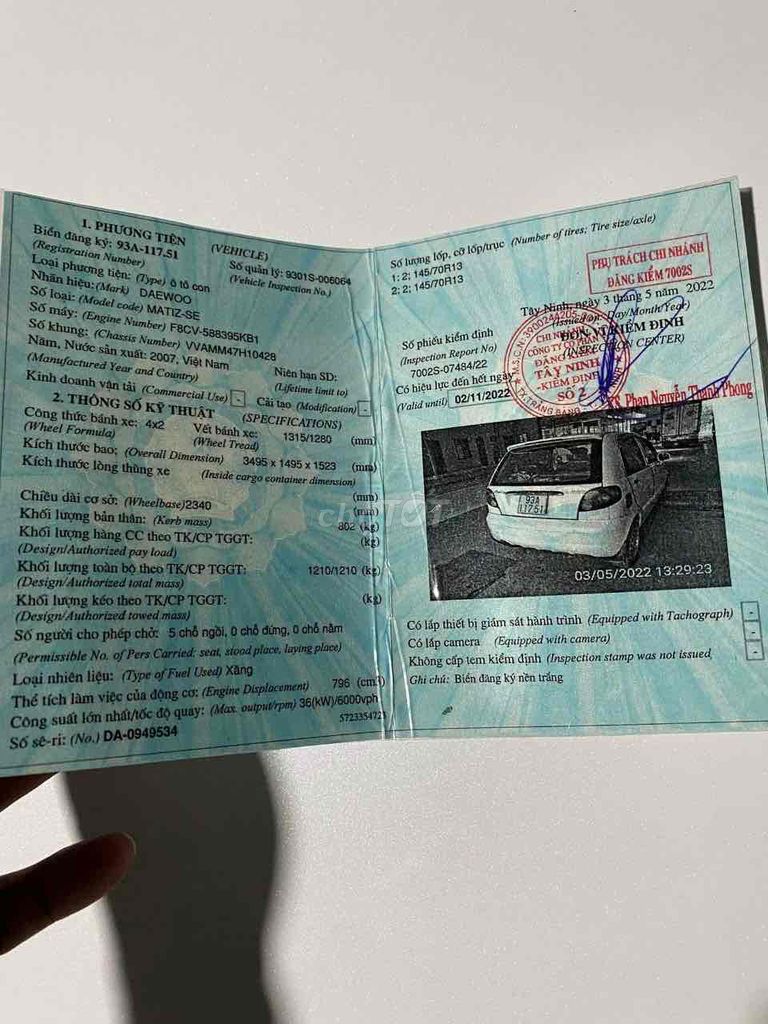 1. PHƯƠNG TIỆN (VEHICLE)
Biển đăng ký: 93A-117.51 Số quản lý: 9301S-006064
(Registration Number) (Vehicle Inspection No.)
Loại phương tiện: (Type) ô tô con
Nhãn hiệu: (Mark) DAEWOO
Số loại: (Model code) MATIZ-SE
Số máy: (Engine Number) F8CV-588395KB1
Số khung: (Chassis Number) VVAMM47H10428
Năm, Nước sản xuất: 2007, Việt Nam Niên hạn SD:
(Manufactured Year and Country) (Lifetime limit to)
Kinh doanh vận tải (Commercial Use) - Cải tạo (Modification) -
2. THÔNG SỐ KỸ THUẬT (SPECIFICATIONS)
Công thức bánh xe: 4x2 Vết bánh xe: 1315/1280 (mm)
(Wheel Formula) (Wheel Tread)
Kích thước bao: (Overall Dimension) 3495 x 1495 x 1523 (mm)
Kích thước lòng thùng xe (Inside cargo container dimension)
(mm)
Chiều dài cơ sở: (Wheelbase) 2340 (mm)
Khối lượng bản thân: (Kerb mass) 802 (kg)
Khối lượng hàng CC theo TK/CP TGGT: (kg)
(Design/Authorized pay load)
Khối lượng toàn bộ theo TK/CP TGGT: 1210/1210 (kg)
(Design/Authorized total mass)
Khối lượng kéo theo TK/CP TGGT: (kg)
(Design/Authorized towed mass)
Số người cho phép chở: 5 chỗ ngồi, 0 chỗ đứng, 0 chỗ nằm
(Permissible No. of Pers Carried: seat, stood place, laying place)
Loại nhiên liệu: (Type of Fuel Used) Xăng
Thể tích làm việc của động cơ: (Engine Displacement) 796 (cm³)
Công suất lớn nhất/tốc độ quay: (Max. output/rpm) 36(kW)/6000vph
Số sê-ri: (No.) DA-0949534
Số lượng lốp, cỡ lốp/trục (Number of tires; Tire size/axle)
1; 2; 145/70R13
2; 2; 145/70R13
PHỤ TRÁCH CHI NHÁNH
ĐĂNG KIỂM 7002S
Tây Ninh, ngày 3 tháng 5 năm 2022
(Issued on: Day/Month/Year)
Số phiếu kiểm định ĐƠN VỊ KIỂM ĐỊNH
(Inspection Report No) (INSPECTION CENTER)
7002S-07484/22
Có hiệu lực đến hết ngày
(Valid until) 02/11/2022
CHI NHÁNH
CÔNG TY CỔ PHẦN
ĐĂNG KIỂM
TÂY NINH
SỐ 2
Phan Nguyễn Thanh Phong
93A
117.51
03/05/2022 13:29:23
Có lắp thiết bị giám sát hành trình (Equipped with Tachograph) -
Có lắp camera (Equipped with camera) -
Không cấp tem kiểm định (Inspection stamp was not issued -
Ghi chú: Biển đăng ký nền trắng